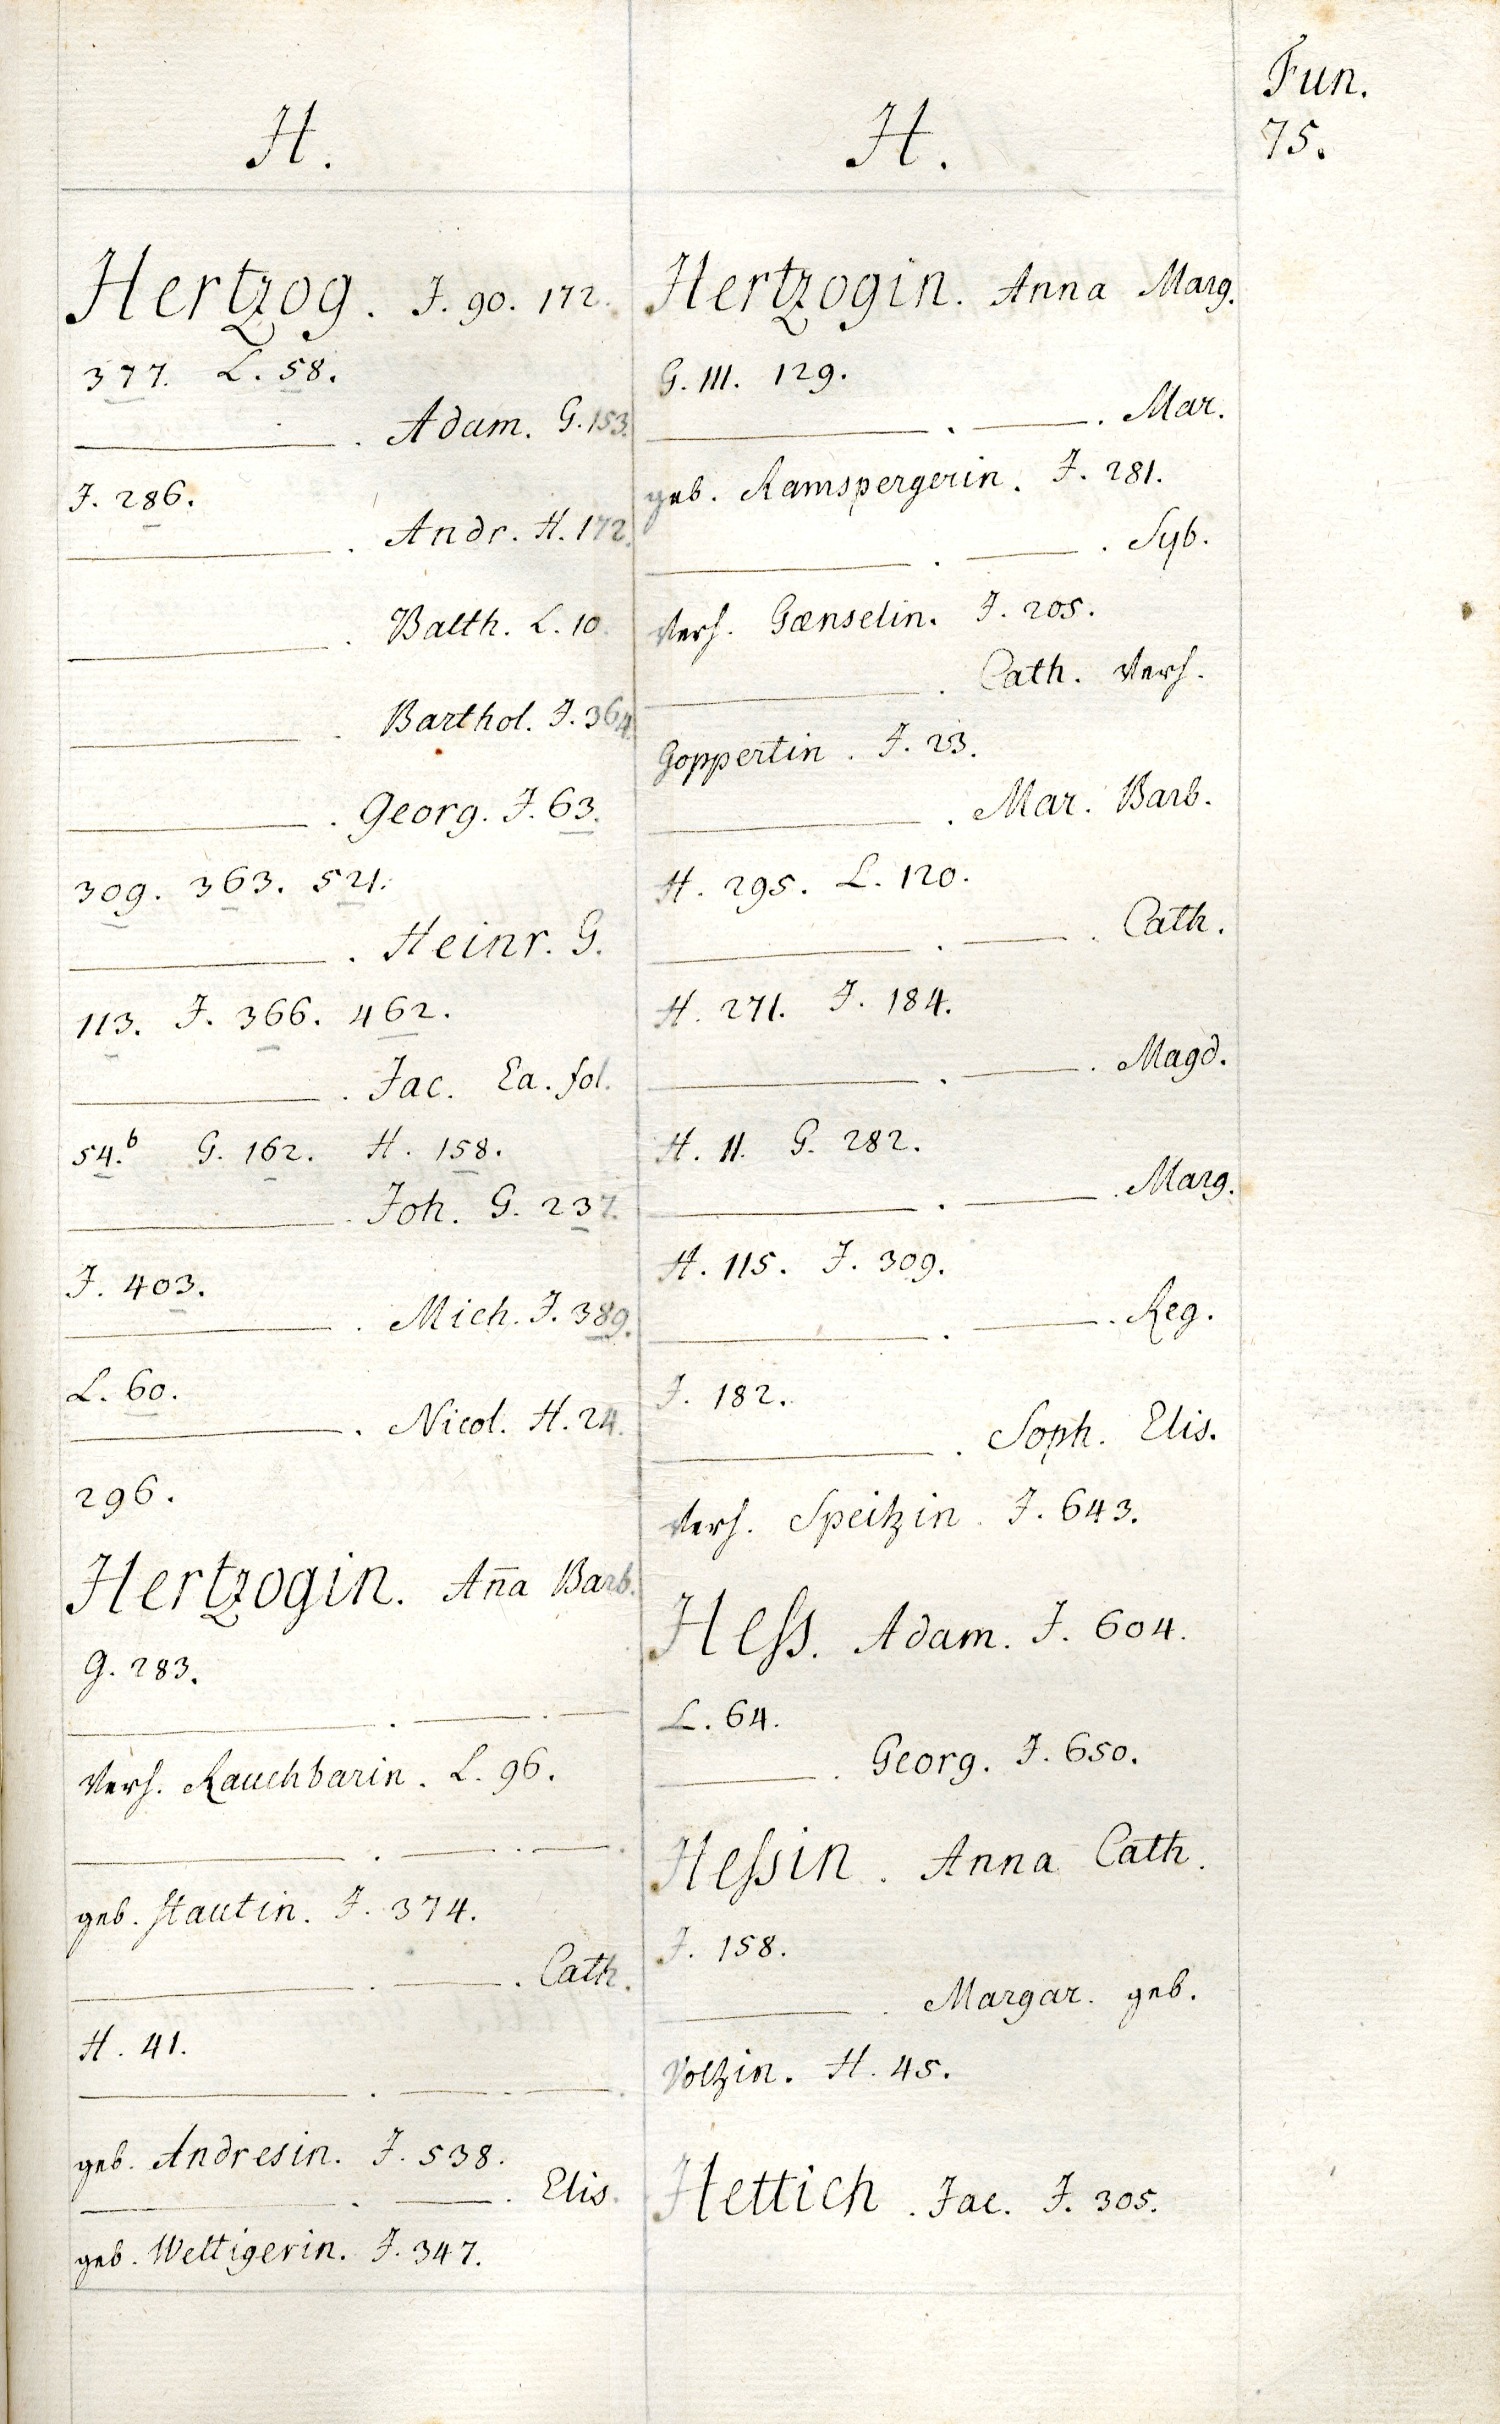 Fun.
75.
H.
Hertzog. J. 90. 172.
377. L. 58.
———. Adam. G. 153.
J. 286.
———. Andr. H. 172.
———. Balth. L. 10.
———. Barthol. J. 364.
———. Georg. J. 63.
309. 363. 521.
———. Heinr. G.
113. J. 366. 462.
———. Jac. Ea. fol.
54.b G. 162. H. 158.
———. Joh. G. 237.
J. 403.
———. Mich. J. 389.
L. 60.
———. Nicol. H. 24.
296.
Hertzogin. An̄a Barb.
G. 283.
———. ———. ———
Verh. Rauchbarin. L. 96.
———. ———. ———.
geb. Stautin. J. 374.
———. ———. Cath.
H. 41.
———. ———. ———.
geb. Andresin. J. 538.
———. ———. Elis.
geb. Weltigerin. J. 347.
H.
Hertzogin. Anna Marg.
G. III. 129.
———. ———. Mar.
geb. Ramspergerin. J. 281.
———. ———. Syb.
Verh. Gænselin. J. 205.
———. Cath. Verh.
Goppertin. J. 23.
———. Mar. Barb.
H. 295. L. 120.
———. ———. Cath.
H. 271. J. 184.
———. ———. Magd.
H. 11. G. 282.
———. ———. Marg.
H. 115. J. 309.
———. ———. Reg.
J. 182.
———. Soph. Elis.
Verh. Speitzin. J. 643.
Heſs. Adam. J. 604.
L. 64.
———. Georg. J. 650.
Heſsin. Anna Cath.
J. 158.
———. Margar. geb.
Voltzin. H. 45.
Hettich. Jac. J. 305.